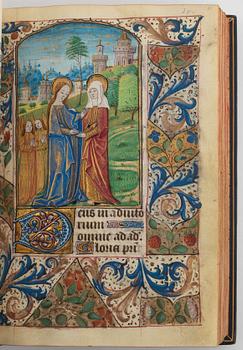 eus in adiuto
rium
omine ad ad
Gloria pri